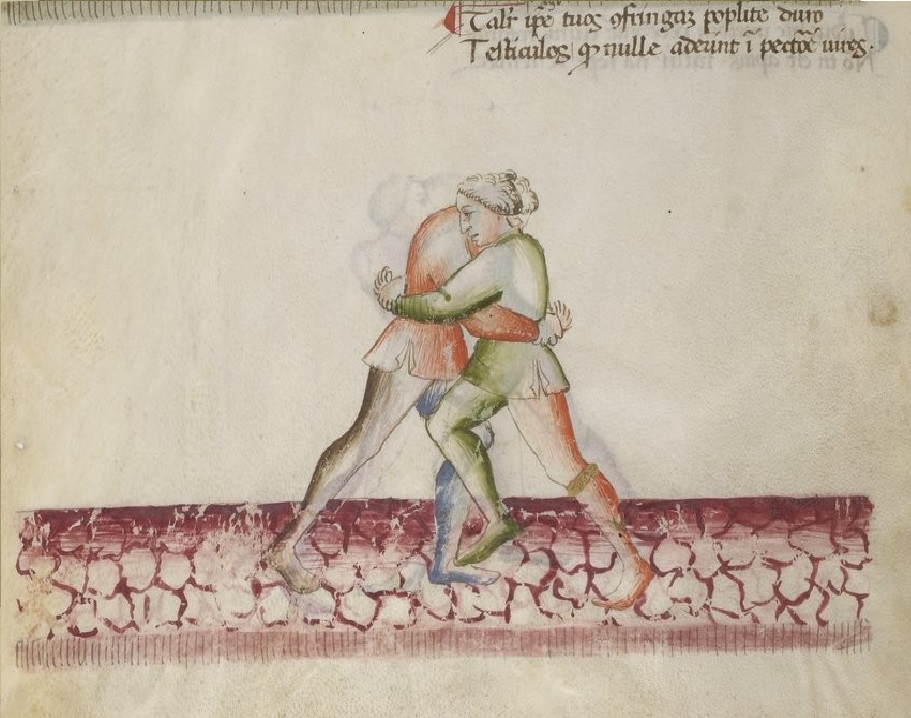 Talr̃ ip̃e tuos ɔfringaz poplite duro
Testiculos ꝙ nulle aderunt ĩ pectõe uires.